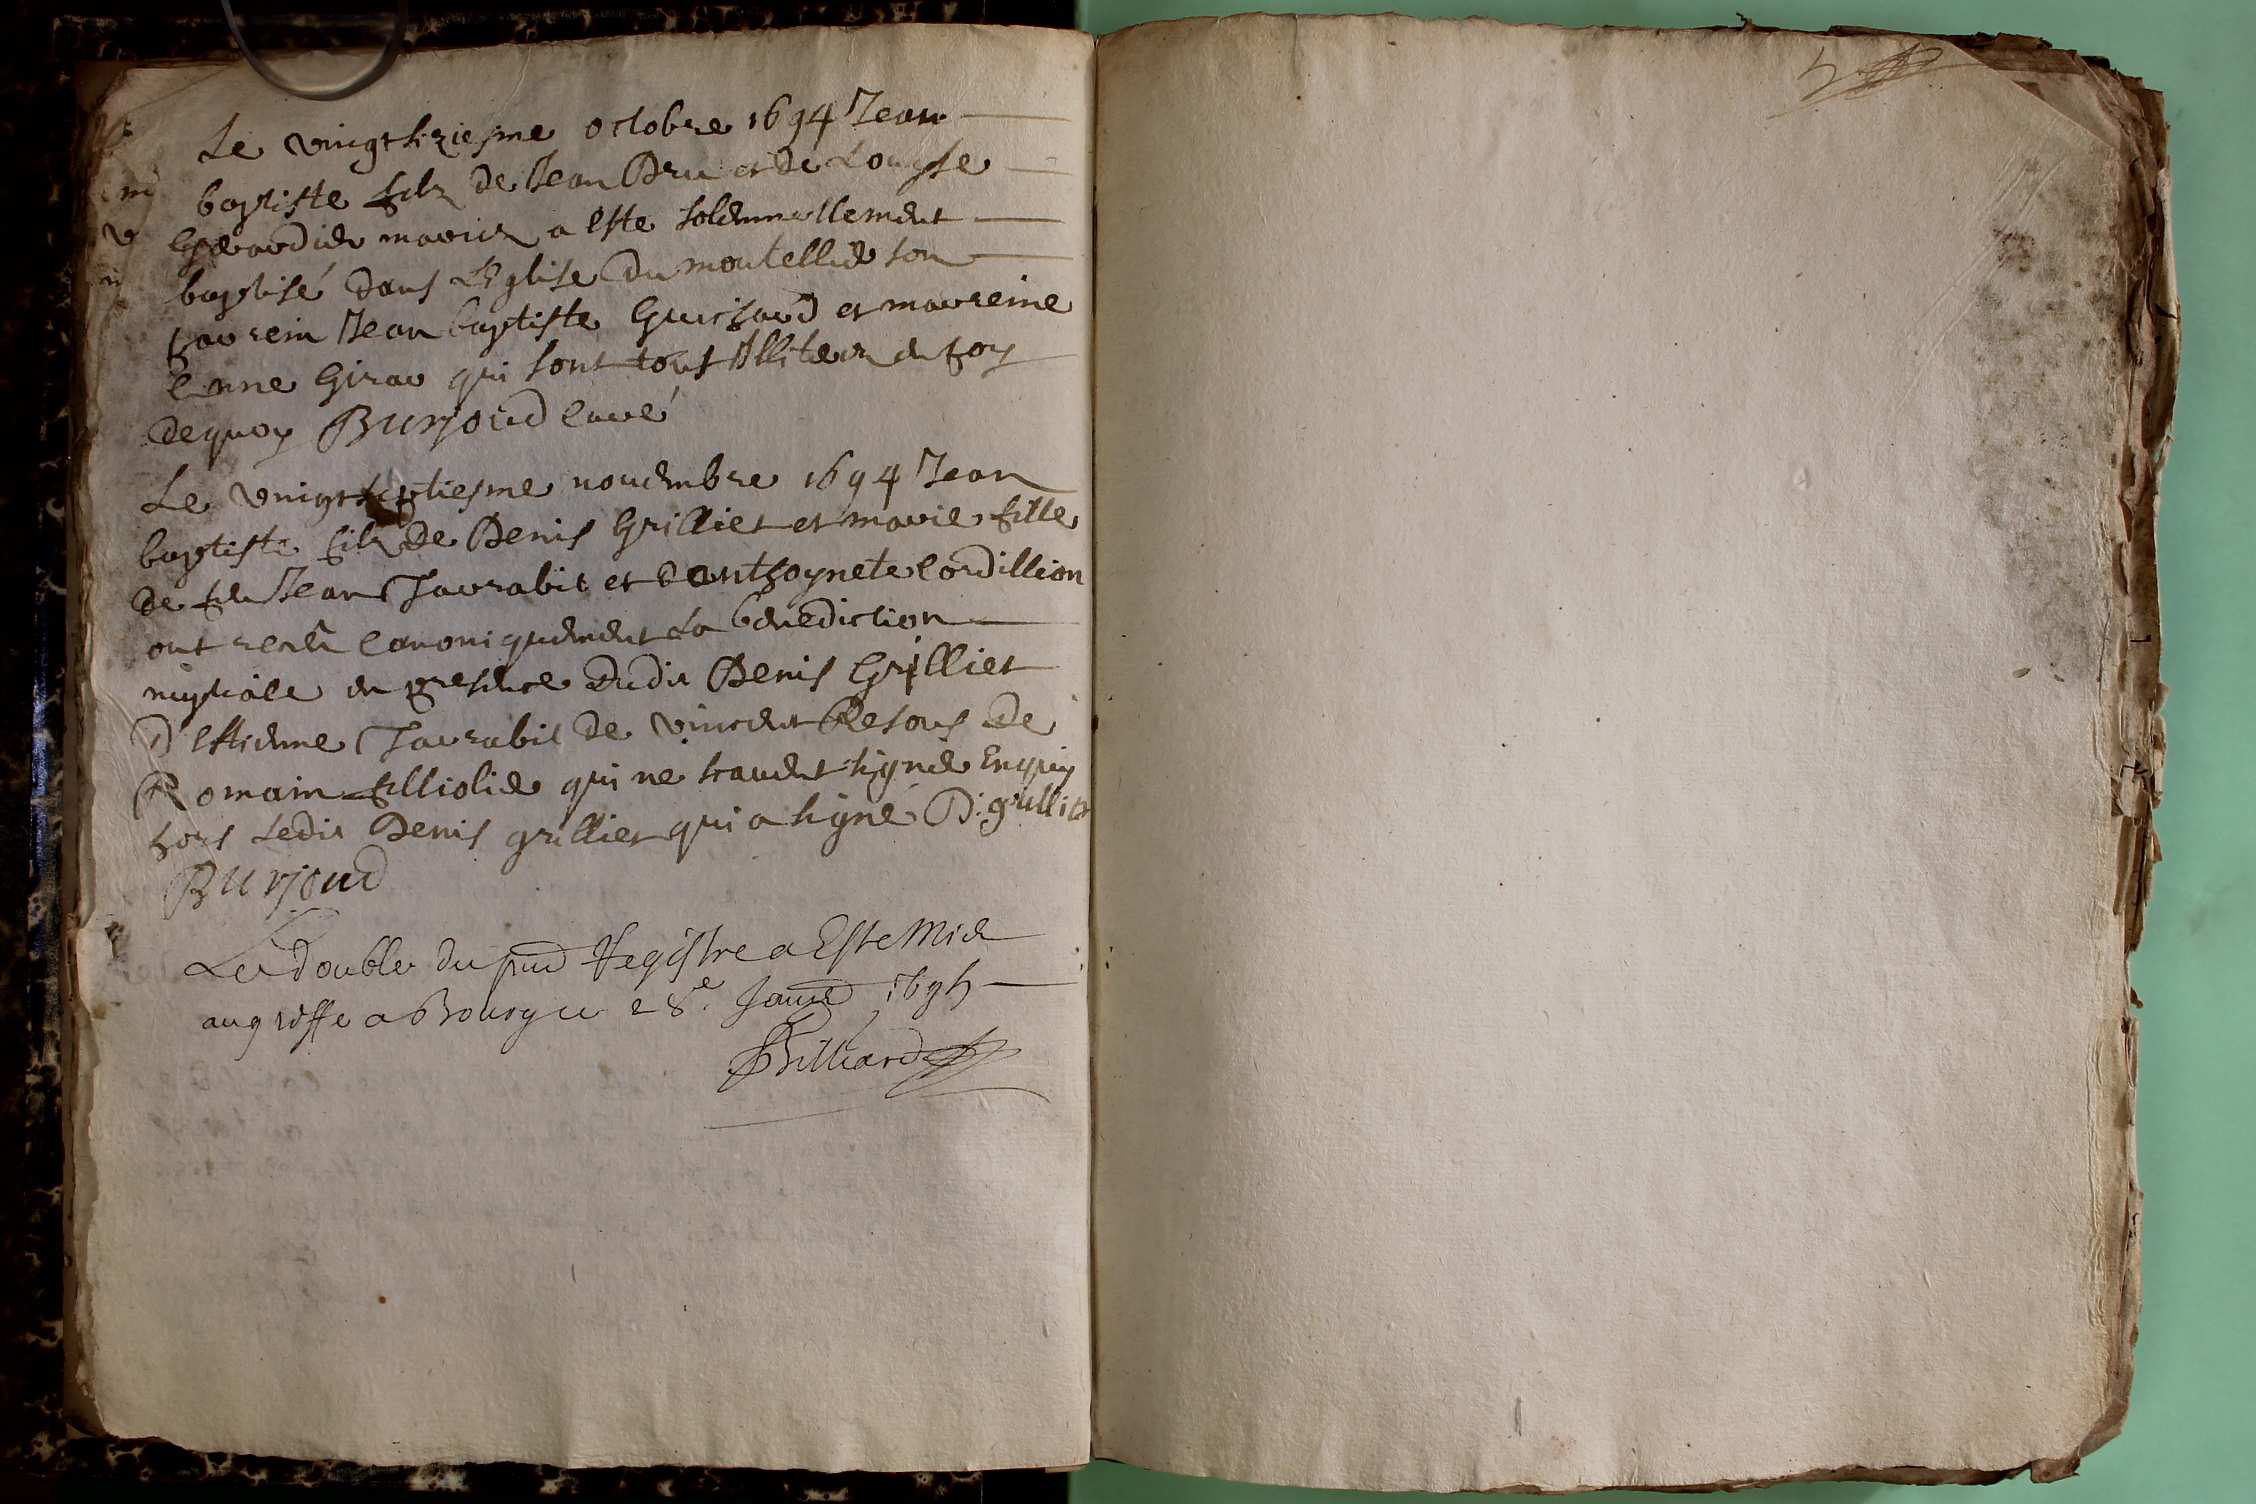 Le vingt sixiesme octobre 1694 Jean
baptiste filz de Jean Dru et de Louyse
mariez a este solemnellement
baptisé dans L'Eglise du montellier son
parrein Jean baptiste Guichard et marreine
Enne Girar qui sont tous Illiterez en foy
dequoy Burjoud Curé
Le vingt septiesme novembre 1694 Jean
baptiste filz de Denis Grilliet et marie fille
de feu Jean Tavrabit et d'anthoynete Cordillion
ont receu Canoniquement La benediction
nuptiale en presence dudit Denis Grilliet
D'Estienne Tavrabit de vincent Resous de
Romain filliolier qui ne scavent signer Enquis
hors Ledit Denis grilliet qui a signé D: grilliet
Burjoud
Le double du pnt Registre a Este Mis
au greffe a Bourg ce 28e. Janvr 1695
Billiard
5